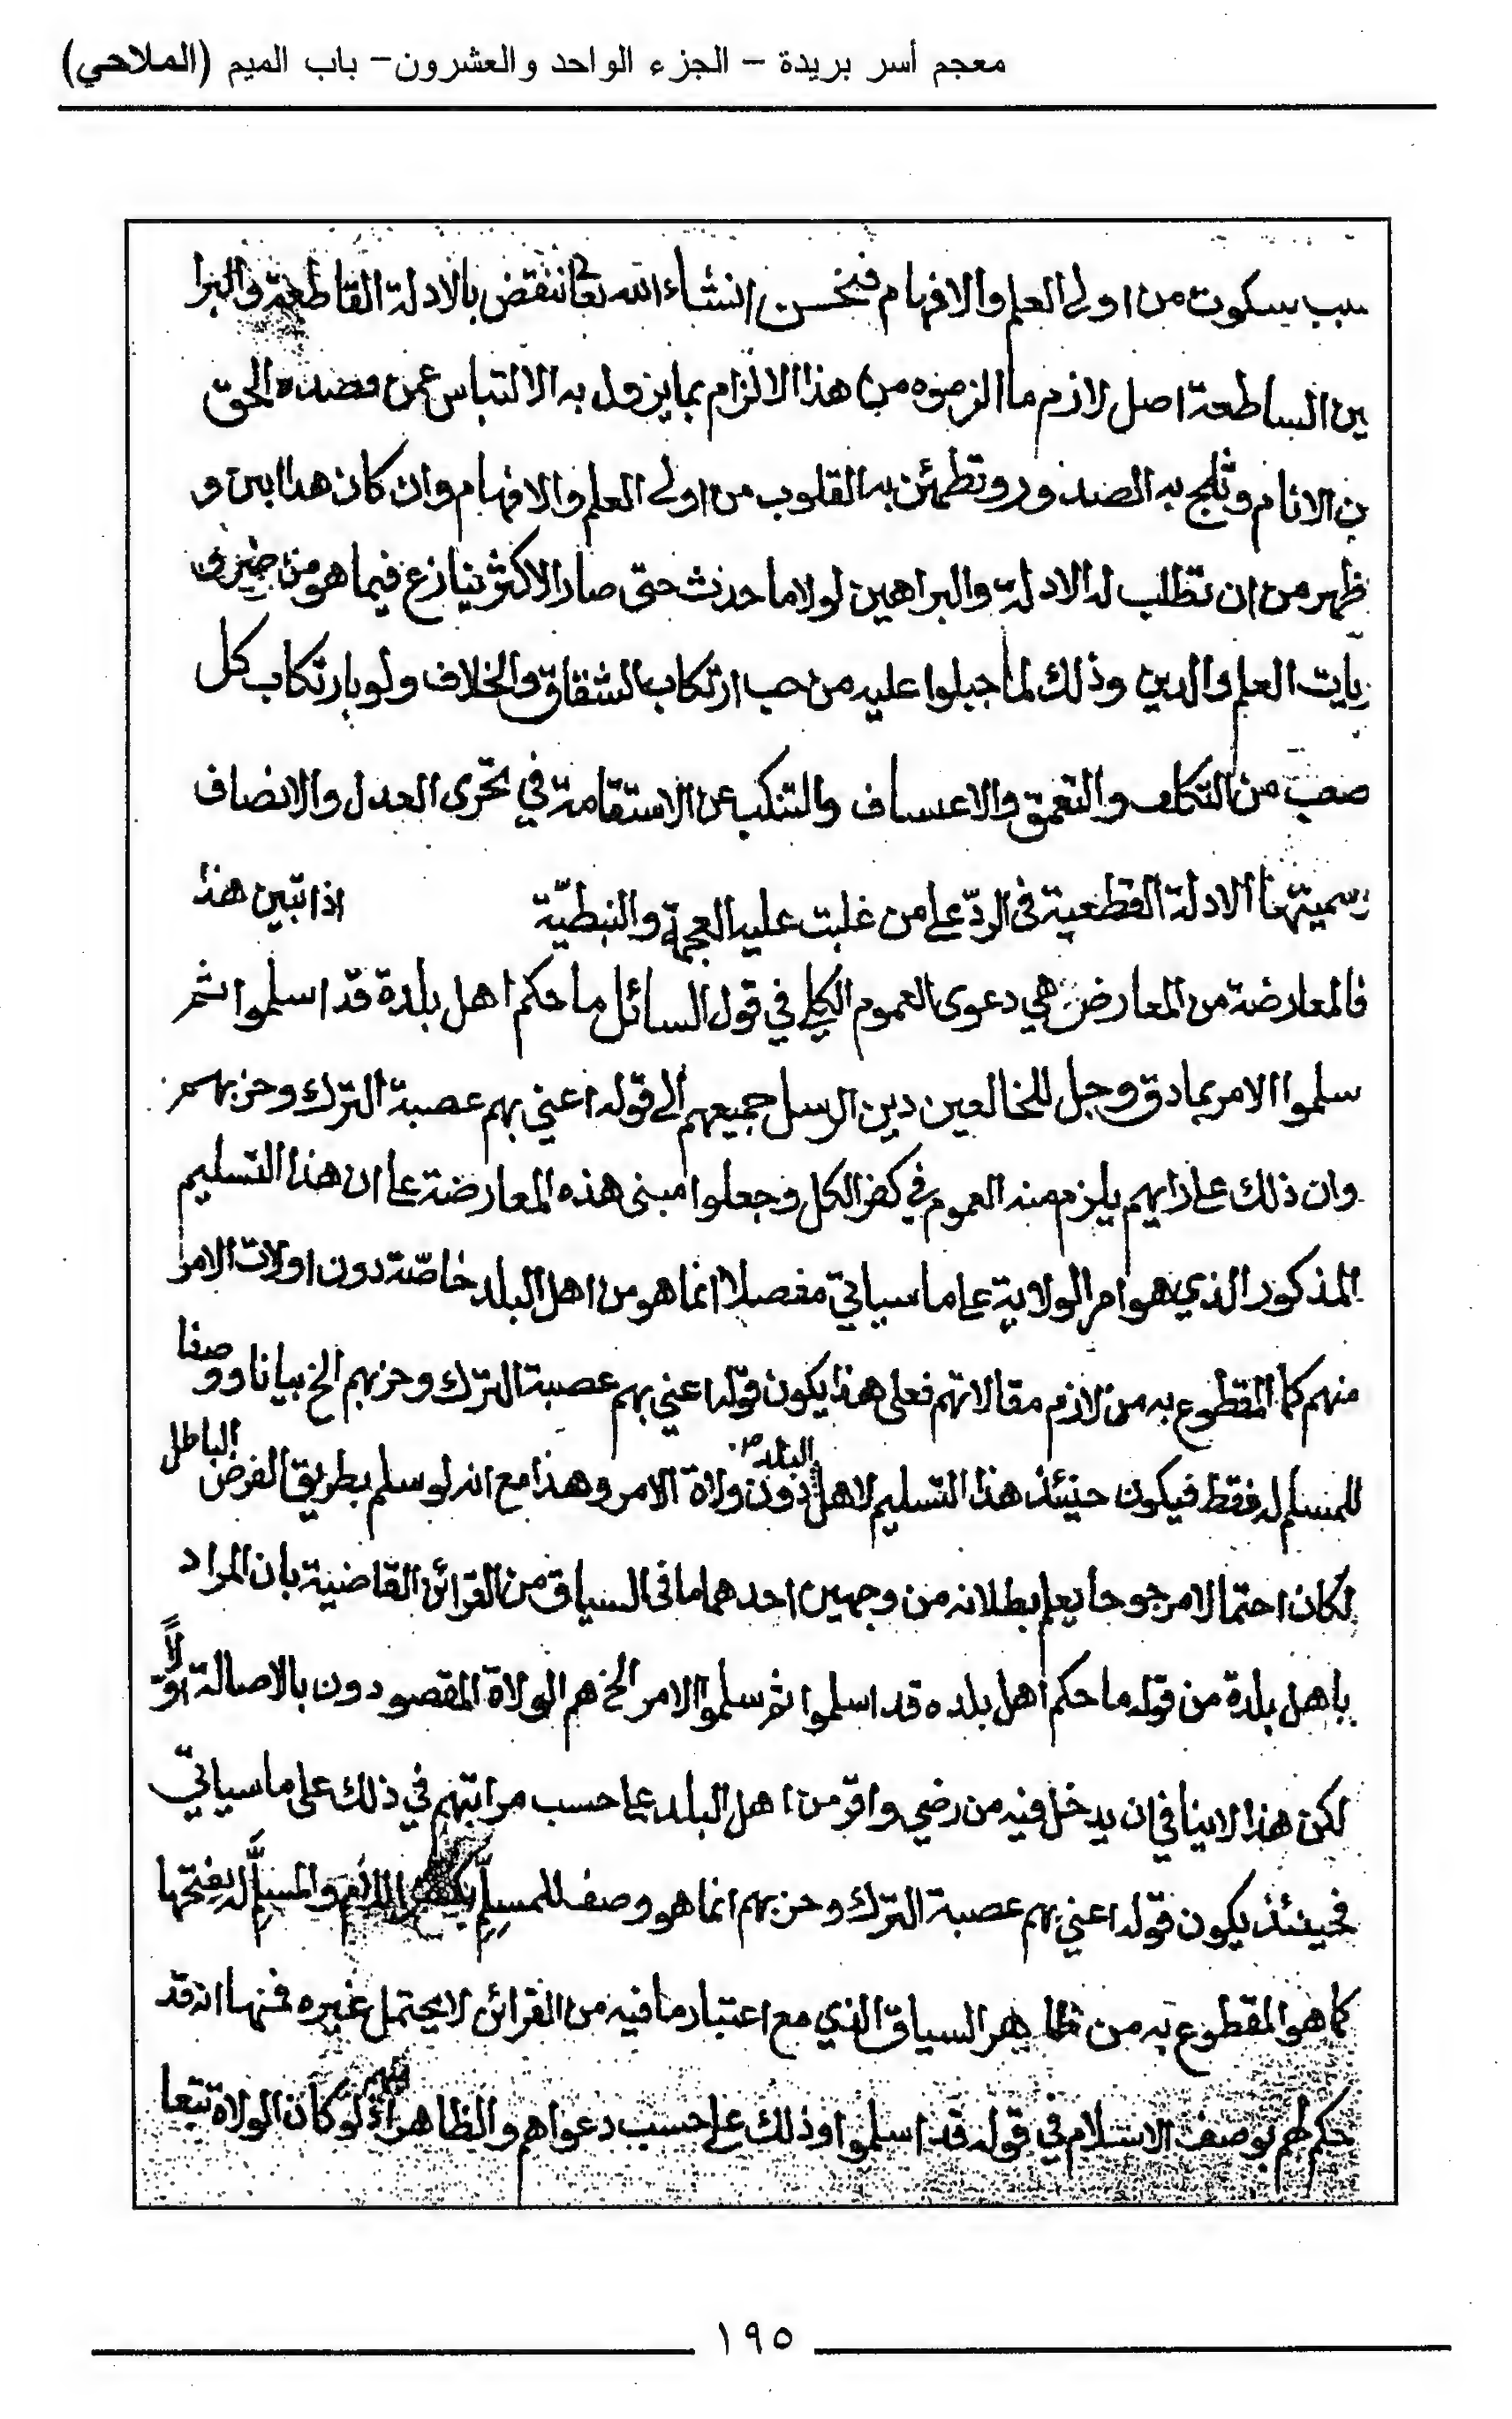 معجم أسر بريدة – الجزء الواحد والعشرون– باب الميم (الملاحي)
سبب سكوت من اولي العلم والافهام فنحن انشاء الله تعا ننقض بالادلة القاطعة والبرا
ين الساطعة اصل لازم ما الزموه من هذا الالزام بما يزول به الالتباس عمن قصده الحق
ن الانام وتثلج به الصدور وتطمئن به القلوب من اولي العلم والافهام وان كان هذا ابين و
ظهر من ان تطلب له الادلة والبراهين لولا ما حدث حتى صار الاكثر ينازع فيما هو من ضرو
ريات العلم والدين وذلك لما جبلوا عليه من حب ارتكاب الشقاق والخلاف ولو بارتكاب كل
صعب من التكلف والتعمق والاعساف والتنكب عن الاستقامة في تحرى العدل والانصاف
سميتها الادلة القطعية فى الردّ على من غلبت عليه العجمة والنبطيّة اذا تبين هذا
فالمعارضة من المعارض هي دعوى العموم الكلي في قول السائل ما حكم اهل بلدة قد اسلموا ثم
سلموا الامر بما دق وجل للخالعين دين الرسل جميعهم الى قوله اعني بهم عصبة الترك وحزبهم
وان ذلك على رايهم يلزم منه العموم في كفر الكل وجعلوا مبنى هذه المعارضة على ان هذا التسليم
المذكور الذي هو امر الولاية على ما سياتي مفصلا انما هو من اهل البلد خاصّة دون اولات الامر
منهم كما المقطوع به من لازم مقالاتهم فعلى هذا يكون قوله اعني بهم عصبة الترك وحزبهم الخ بيانا ووصفا
للمسلم له فقط فيكون حينئذ هذا التسليم لاهل البلد دون ولاة الامر وهذا مع انه لو سلم بطريق الفرض الباطل
لكان احتمالا مرجوحا يعلم بطلانه من وجهين احدهما ما فى السياق من القرائن القاضية بان المراد
باهل بلدة من قوله ما حكم اهل بلده قد اسلموا ثم سلموا الامر الخ هم الولاة المقصودون بالاصالة اوّلاً
لكن هذا لا ينافي ان يدخل فيه من رضي واقر من اهل البلد على حسب مراتبهم في ذلك على ما سياتي
فحينئذ يكون قوله اعني بهم عصبة الترك وحزبهم انما هو وصف للمسلِّم بكسر اللام والمسلَّم له بفتحها
كما هو المقطوع به من ظاهر السياق الذي مع اعتبار ما فيه من القرائن لا يحتمل غيره فمنها انه قد
حكم لهم بوصف الاسلام في قوله قد اسلموا وذلك على حسب دعواهم والظاهر لو كان الولاة تبعا
١٩٥